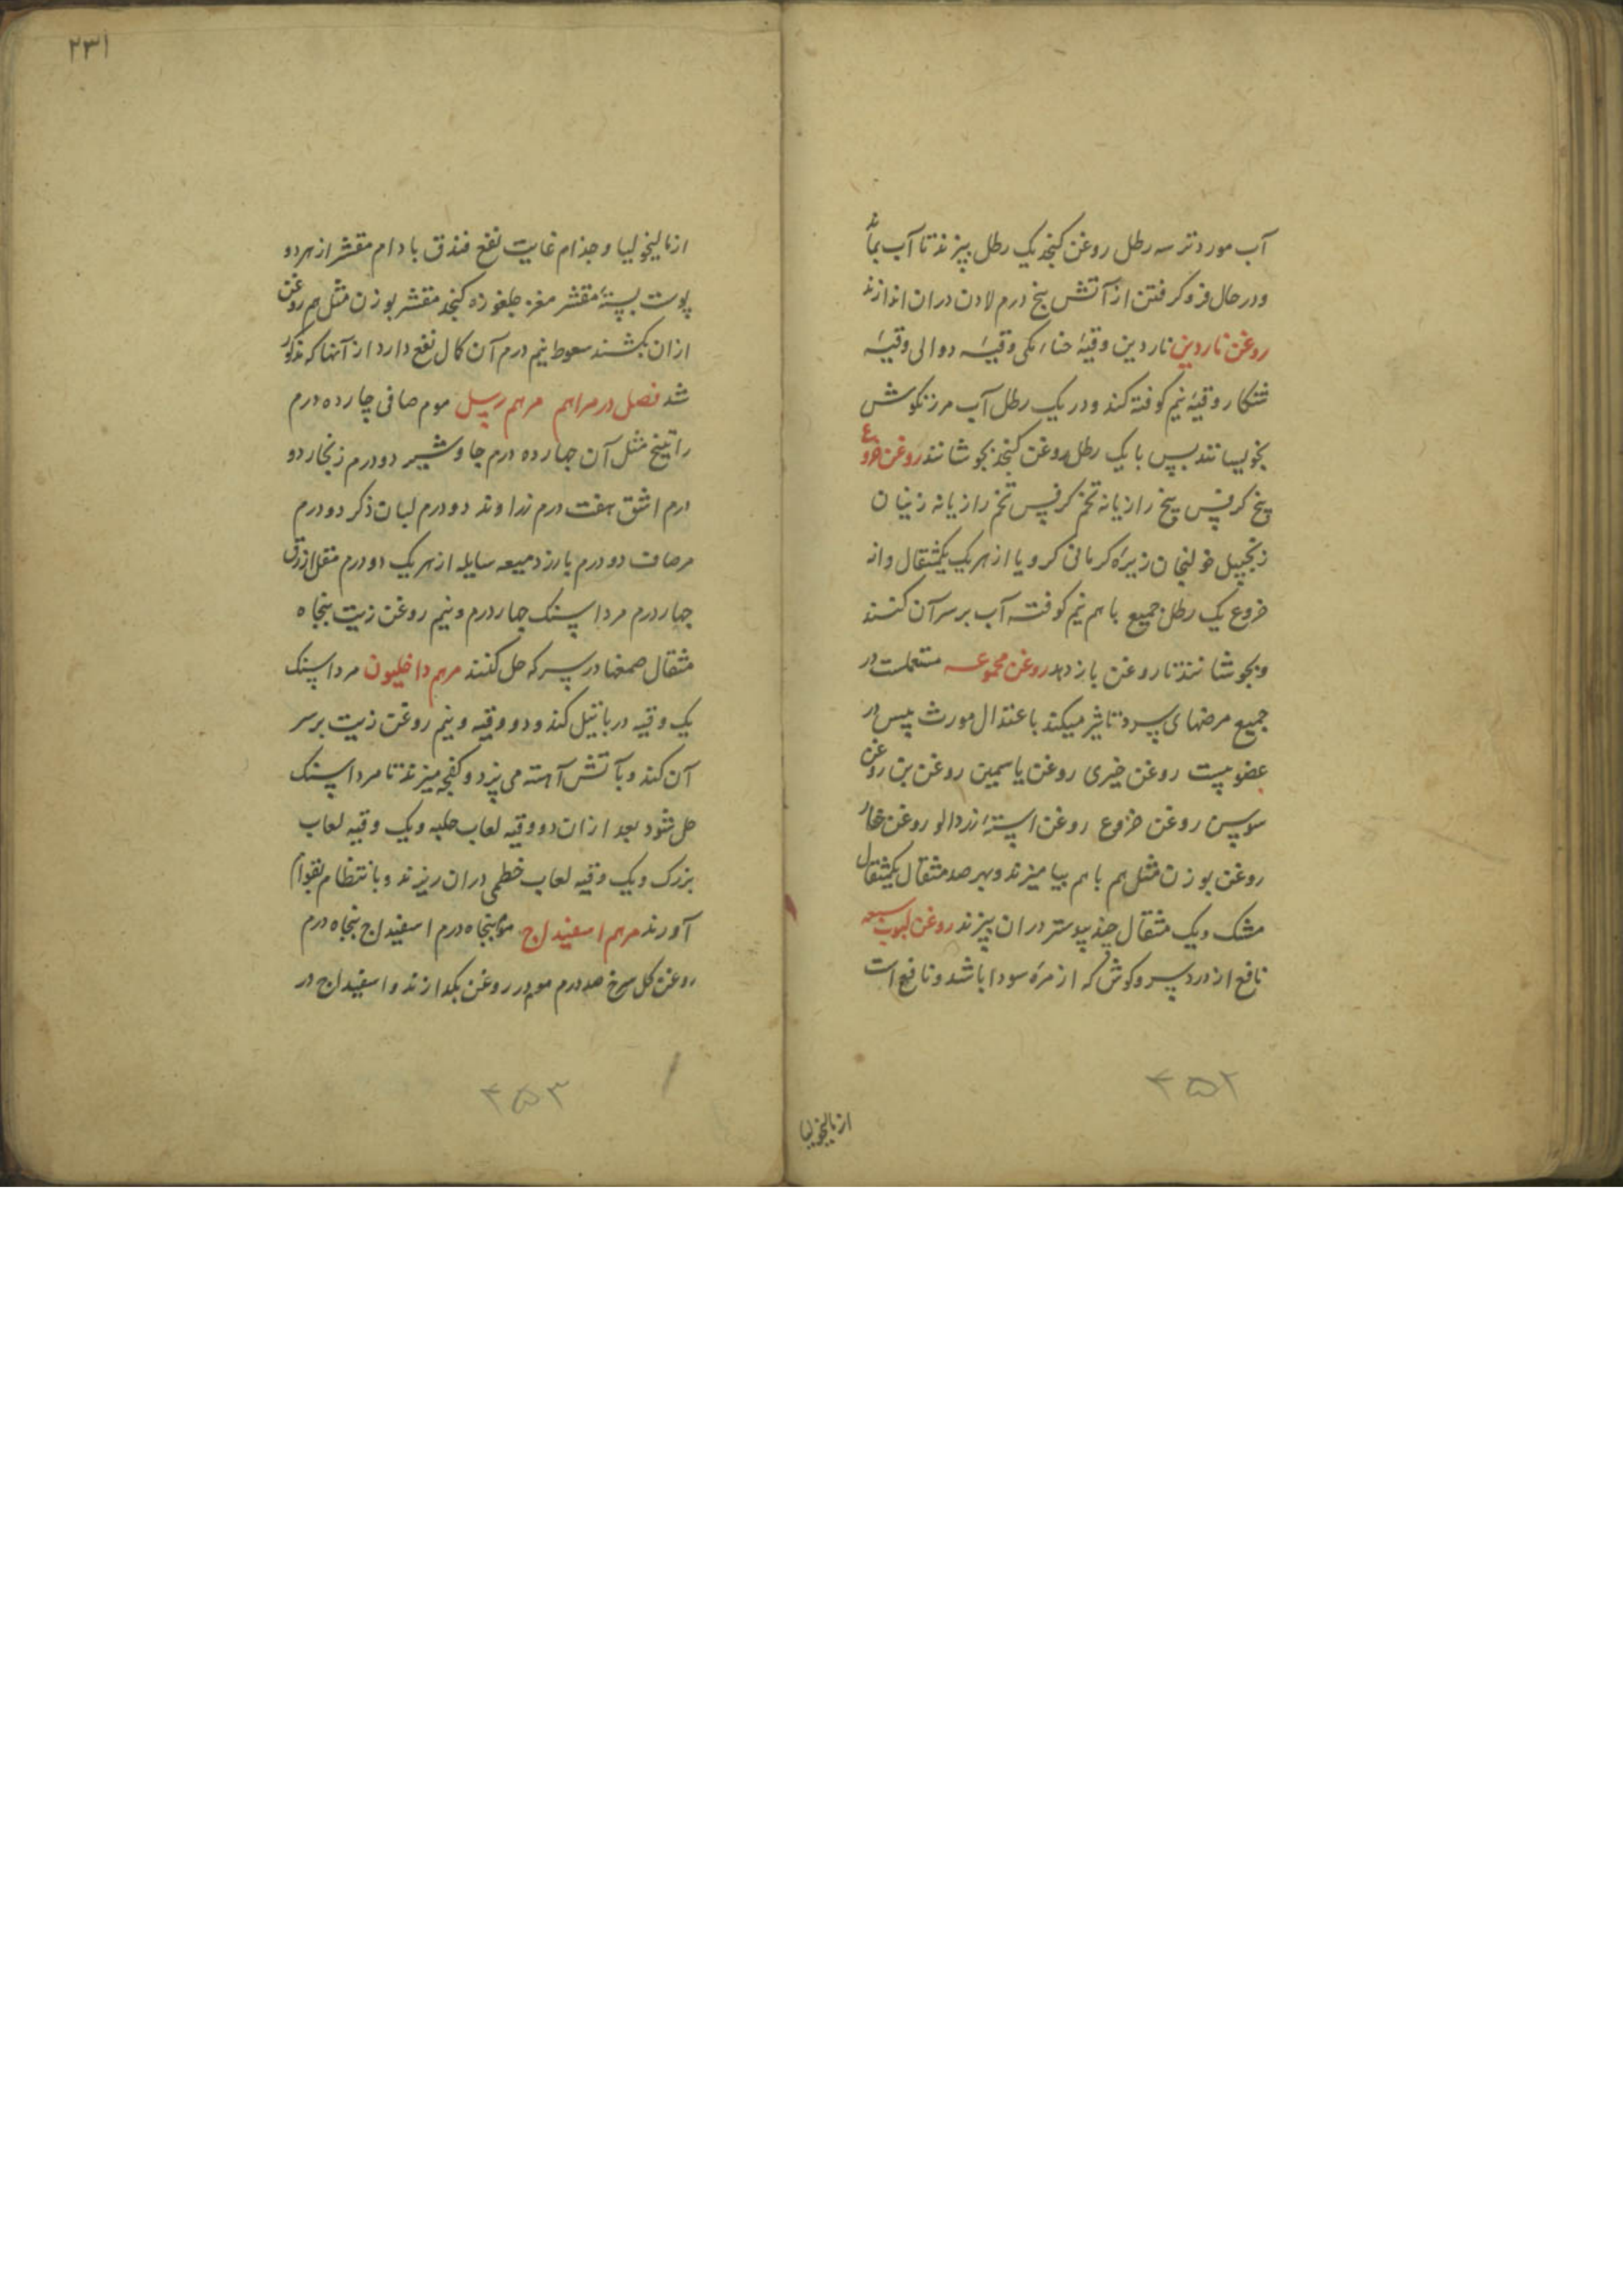 آب مورد تر سه رطل روغن کنجد یک رطل بپزند تا آب بماند
و در حال فرو گرفتن از آتش پنج درم لادن دران اندازند
روغن ناردین ناردین وقیهٔ حناء مکی وقیهٔ دوالی وقیهٔ
شنکار وقیهٔ نیم کوفته کند و در یک رطل آب مرزنکوش
بخویسانند پس با یک رطل روغن کنجد بجوشانند روغن خروع
بیخ کرفس بیخ رازیانه تخم کرفس تخم رازیانه زنیان
زنجبیل خولنجان زیره کرمانی کرویا از هر یک یکمثقال دانه
خروع یک رطل جمیع با هم نیم کوفته آب بر سر آن کنند
و بجوشانند تا روغن باز دهد روغن مجموعه مستعملست در
جمیع مرضهای سرد تاثیر میکند باعتدال مورث پس در
عضویست روغن خیری روغن یاسمین روغن بن روغن
سوسن روغن خروع روغن استهٔ زردالو روغن غار
روغن بوزن مثل هم با هم بیامیزند و بهر صد مثقال یکمثقال
مشک و یک مثقال جندبیدستر دران بپزند روغن لبوب سبعه
نافع از درد سر و کوش که از مره سودا باشد و نافع است
از مالیخولیا
۴۵۲
۲۳۱
از مالیخولیا و جذام غایت نفع فندق بادام مقشر از هر دو
پوست پستهٔ مقشر مغز جلغوزه کنجد مقشر بوزن مثل هم روغن
ازان بکشند سعوط نیم درم آن کمال نفع دارد از آنها که مذکور
شد فصل در مراهم مرهم رسل موم صافی چارده درم
راتینج مثل آن چهارده درم جاوشیر دو درم زنجار دو
درم اشق هفت درم زراوند دو درم لبان ذکر دو درم
مر صاف دو درم بارزد میعه سایله از هر یک دو درم مقل ازرق
چهار درم مرداسنک چهار درم و نیم روغن زیت پنجاه
مثقال صمغها در سرکه حل کنند مرهم داخلیون مرداسنک
یک وقیه در باتیل کند و دو وقیه و نیم روغن زیت بر سر
آن کند و بآتش آهسته می پزد و کفچه میزند تا مرداسنک
حل شود بعد ازان دو وقیه لعاب حلبه و یک وقیه لعاب
بزرک و یک وقیه لعاب خطمی دران ریزند و بانتظام بقوام
آورند مرهم اسفیداج موم پنجاه درم اسفیداج پنجاه درم
روغن کل سرخ صد درم موم در روغن بکدازند و اسفیداج در
۴۵۳